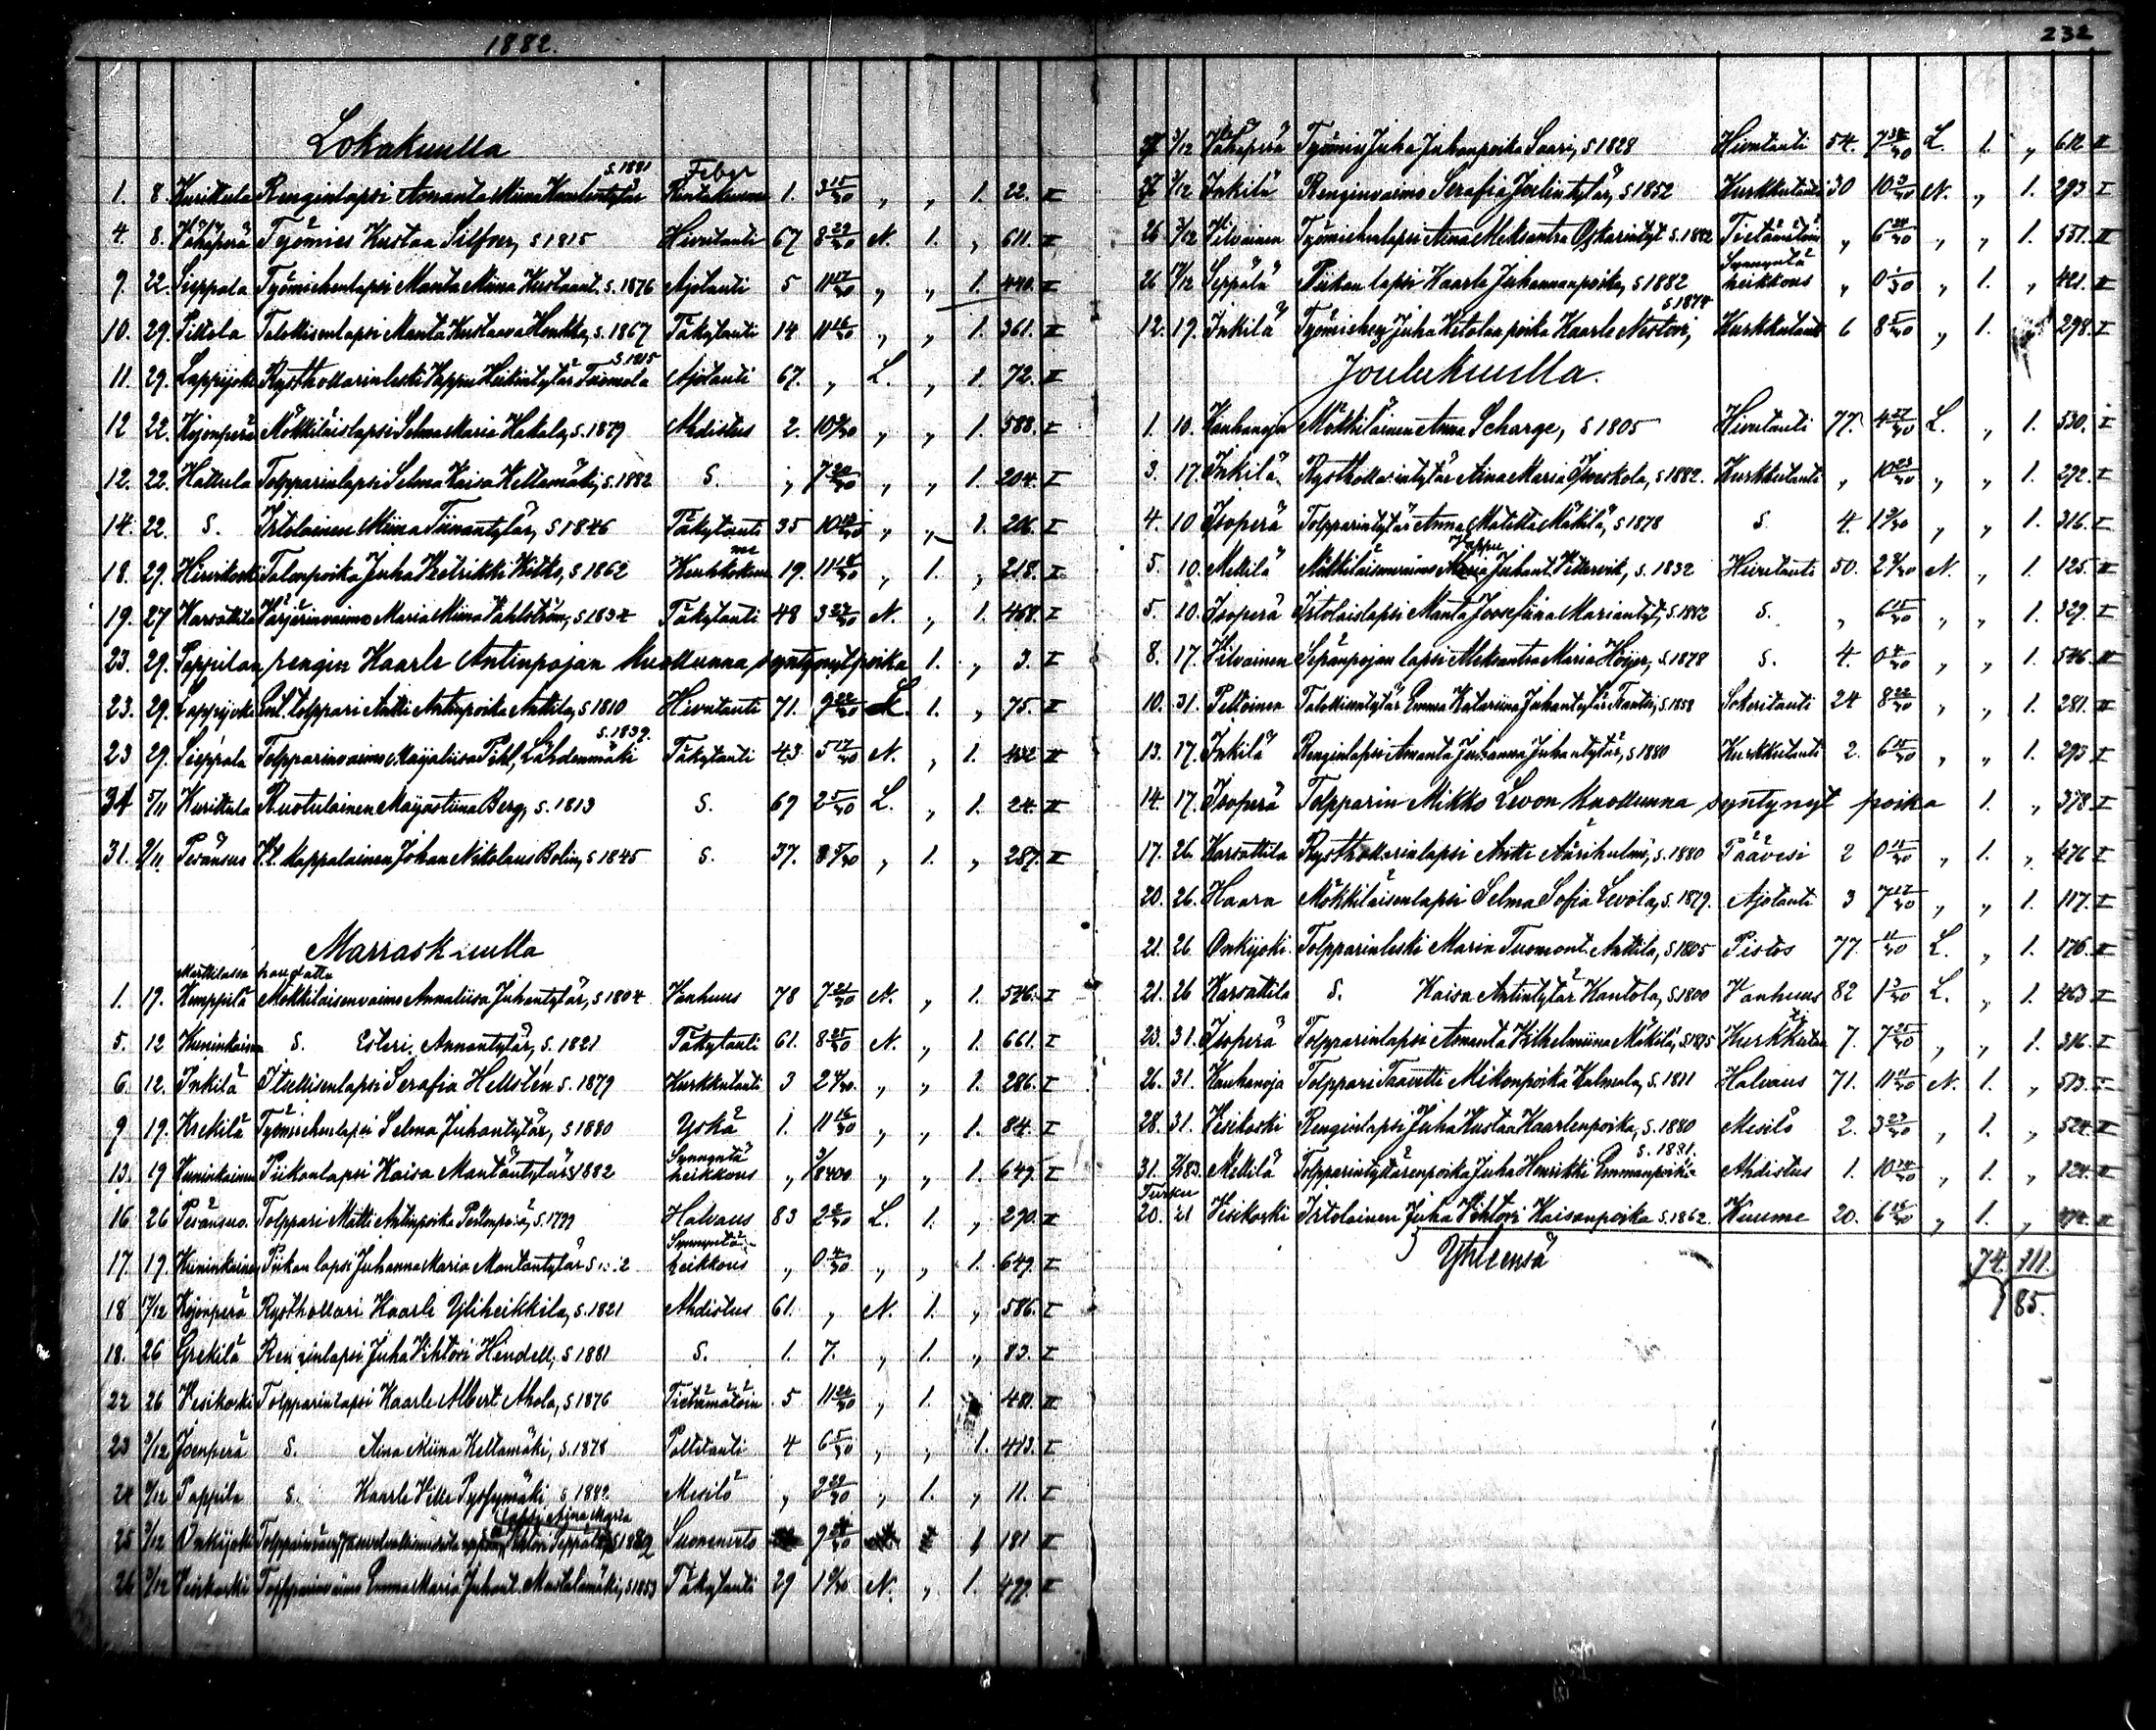 1882.
232
Lokakuulla
1. 8. Kurittula Renginlapsi Amanta Miina Kaarlentytär s. 1881 Febr Rintakuume 1. 3 15/30 „ „ 1. 22. I
4. 8. Vähäperä Työmies Kustaa Silfver, s 1815 Hivutauti 67 8 22/30 N. 1. „ 611. II
9. 22. Sieppala Työmiehenlapsi Manta Miina Kustaant. s. 1876 Ajotauti 5 11 17/30 „ „ 1. 440. II
10. 29. Piltola Talollisenlapsi Manta Kustaava Honkka, s. 1867 Täkytauti 14 11 16/30 „ „ 1. 361. II
11. 29. Lappijoki Rysthollarinleski Vappu Heikintytär Tuomola s. 1815 Ajotauti 67. „ L. „ 1. 72. II
12 22. Kojonperä Mökkiläislapsi Selma Maria Hakala, s. 1879 Ahdistus 2. „ „ 1. 588. I
12. 22. Hattula Tolpparinlapsi Selma Kaisa Keltamäki, s. 1882 S. „ 7 20/30 „ „ 1. 204. I
14. 22. S. Irtolainen Miina Tiinantytär, s 1846 Täkytauti 35 „ „ 1. 206. I
18. 29. Hirvikoski Talonpoika Juha Fetrikki Kitko, s 1862 Keuhkokuume 19. „ 1. „ 218. I
19. 27 Karsattila Värjärinvaimo Maria Miina Vahlström, s 1834 Täkytauti 48 3 27/30 N. „ 1. 468. I
23. 29. Pappilan rengin Haarle Antinpojan kuollunna syntynyt poika 1. „ 3. I
23. 29. Lappijoki Ent. tolppari Antti Antinpoika Anttila, s 1810 Hivutauti 71. 9 22/30 L. 1. „ 75. II
23 29. Sieppala Tolpparinvaimo Maijaliisa Pihl, Lähdenmäki s. 1839. Täkytauti 43. 5 17/30 N. „ 1. 432 II
31 5/11 Kurittula Ruotulainen Maijastiina Berg, s. 1813 S. 69 2 5/30 L. „ 1. 24. II
31. 9/11. Peränsuo V.t. kappalainen Johan Nikolaus Bolin, s 1845 S. 37. „ 1. „ 287. II
Marraskuulla
1. 19. Kemppilä Mökkiläisenvaimo Annaliisa Juhantytär, s 1804 Vanhuus 78 7 21/30 N. „ 1. 546. I
5. 12 Kuninkainen S. Esteri Annantytär, s. 1821 Täkytauti 61. 8 25/30 N. „ 1. 661. I
6. 12. Inkilä Itsellisenlapsi Serafia Hellstén s. 1879 Kurkkutauti 3 „ „ 1. 286. I
9 19. Krekilä Työmiehenlapsi Selma Juhantytär, s 1880 Yskä 1. 11 16/30 „ „ 1. 84. I
13. 19 Kuninkainen Piikanlapsi Kaisa Mantantytär s 1882 Synnyntä heikkous „ „ „ 1. 649. I
16 26 Peränsuo. Tolppari Matti Antinpoika s. 1799 Halvaus 83 L. 1. „ 290. II
17. 19. Kuninkainen Piikan lapsi Juhanna Maria Mantantytär Synnyntä heikkous „ 0 4/30 „ „ 1. 649. I
18 17/12 Kojonperä Rysthollari Kaarle Yliheikkilä, s. 1821 Ahdistus 61. „ N. 1. „ 586. I
18. 26 Grekilä Renginlapsi Juha Vihtori Hendell, s 1881 S. 1. 7. „ 1. „ 83. I
22 26 Vesikoski Tolpparinlapsi Kaarle Albert Ahola, s 1876 Tietämätöin 5 „ 1. 481. II
23 3/12 Joenperä S. Aina Miina Keltamäki, s. 1878 Polttotauti 4 6 5/30 „ „ 1. 413. I
24 Pappila S. Kaarle Ville s 1882 Mesilö „ „ 1. „ 11. I
25 3/12 Onkijoki lapsi Aina Maria s 1882 Suonenveto 1 181 I
26 3/12 Vesikoski Tolpparinvaimo Emma Maria Juhant. Mustalamäki, s 1853 Täkytauti 29 N. „ 1. 499. II
3/12 Vähäperä Työmies Juha Juhanpoika Saari, s 1828 Hivutauti 54. L. 1. „ 612 II
27 3/12 Inkilä Renginvaimo Serafia Joelintytär, s 1852 Kurkkutauti 30 10 3/30 N. „ 1. 293 I
26 3/12 Vilvainen Työmiehenlapsi Aina Aleksantra Oskarintyt s. 1882 Tietämätöin „ „ „ 1. 531. II
26 17/12 Seppälä Piikan lapsi Kaarle Juhannanpoika, s 1882 Synnyntä heikkous „ 0 1/30 „ 1. „ 421. I
12. 19. Inkilä Työmiehen Juha Ketolan poika Kaarle Nestori, s 1874 Kurkkutauti 6 8 5/30 „ 1. 298. I
Joulukuulla.
1. 10. Kanhanoja Mökkiläinen Anna Scharge, s 1805 Hivutauti 77. 4 27/30 L. „ 1. 530. I
3. 17. Inkilä Rysthollarintytär Aina Maria Isoeskola, s 1882. Kurkkutauti „ 10 23/30 „ „ 1. 292. I
4. 10 Isoperä Tolpparintytär Anna Matilta Mäkilä, s 1878 S 4. „ „ 1. 316. I
5. 10. Mellilä Mökkiläisenvaimo Vappu Juhant. Vettervik, s. 1832 Hivutauti 50. N. „ 1. 125. II
5. 10. Isoperä Irtolaislapsi Manta Joosefiina Mariantyt, s. 1882 S. „ 6 15/30 „ „ 1. 329. I
8. 17. Vilvainen Sepänpojan lapsi Aleksantra Maria Höijer, s. 1878 S. 4. 0 4/30 „ „ 1. 546 II
10. 31. Peltoinen Talollisentytär Emma Katariina Juhantytär Frantti, s 1858 Sokeritauti 24 8 22/30 „ „ 1. 281. II
13. 17. Inkilä Renginlapsi Amanta Juhanna Juhantytär, s 1880 Kurkkutauti 2. „ „ 1. 293 I
14. 17. Isoperä Tolpparin Mikko Levon kuollunna syntynyt poika 1. „ 378 I
17. 26. Karsattila Rysthollarinlapsi Antti Äärihulmi, s. 1880 Päävesi 2 „ 1. „ 476 I
20. 26. Haara Mökkiläisenlapsi Selma Sofia Levola, s. 1879. Ajotauti 3 7 12/30 „ „ 1. 117. I
21. 26 Onkijoki. Tolpparinleski Maria Tuomont. Anttila, s 1805 Pistos 77. 11/30 L. „ 1. 176. II
21. 26 Karsattila S. Kaisa Antintytär Kantola, s 1800 Vanhuus 82 L. „ 1. 463 I
23. 31. Isoperä Tolpparinlapsi Amanta Vilhelmiina Mäkilä, s. 1875 Kurkkutauti 7. 7 25/30 „ „ 1. 316. I
26. 31. Kauhanoja Tolppari Taavetti Mikonpoika Kulmala, s. 1811 Halvaus 71. 11 11/30 N. 1. „ 513. I
28. 31. Vesikoski Renginlapsi Juha Kustaa Kaarlenpoika, s. 1880 Mesilö 2. 3 23/30 „ 1. „ 524. II
31. Mellilä Tolpparintyttärenpoika Juha Henrikki Emmanpoika s. 1881. Ahdistus 1. „ 1. „ 124. II
Turku
20. 21 Vesikoski Irtolainen Juha Vihtori Kaisanpoika s. 1862. Kuume 20. „ 1. „ II
Yhteensä
74. 111.
85.